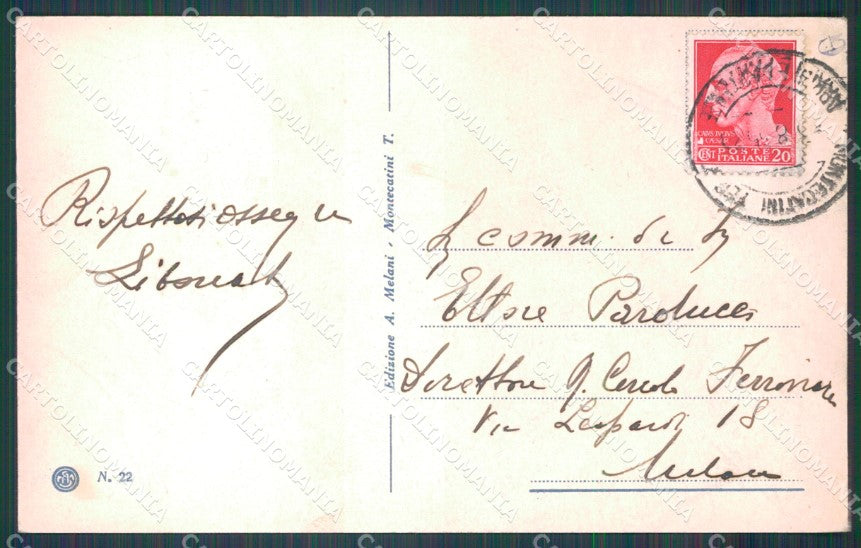 Rispettosi ossequi
Edizione A. Melani - Montecatini T.
N. 22
POSTE
CENT ITALIANE 20
MONTECATINI TER
comm.
Ettore Parducci
Direttore Circolo Ferroviario
Via Leopardi 18
Milano
CARTOLINOMANIA